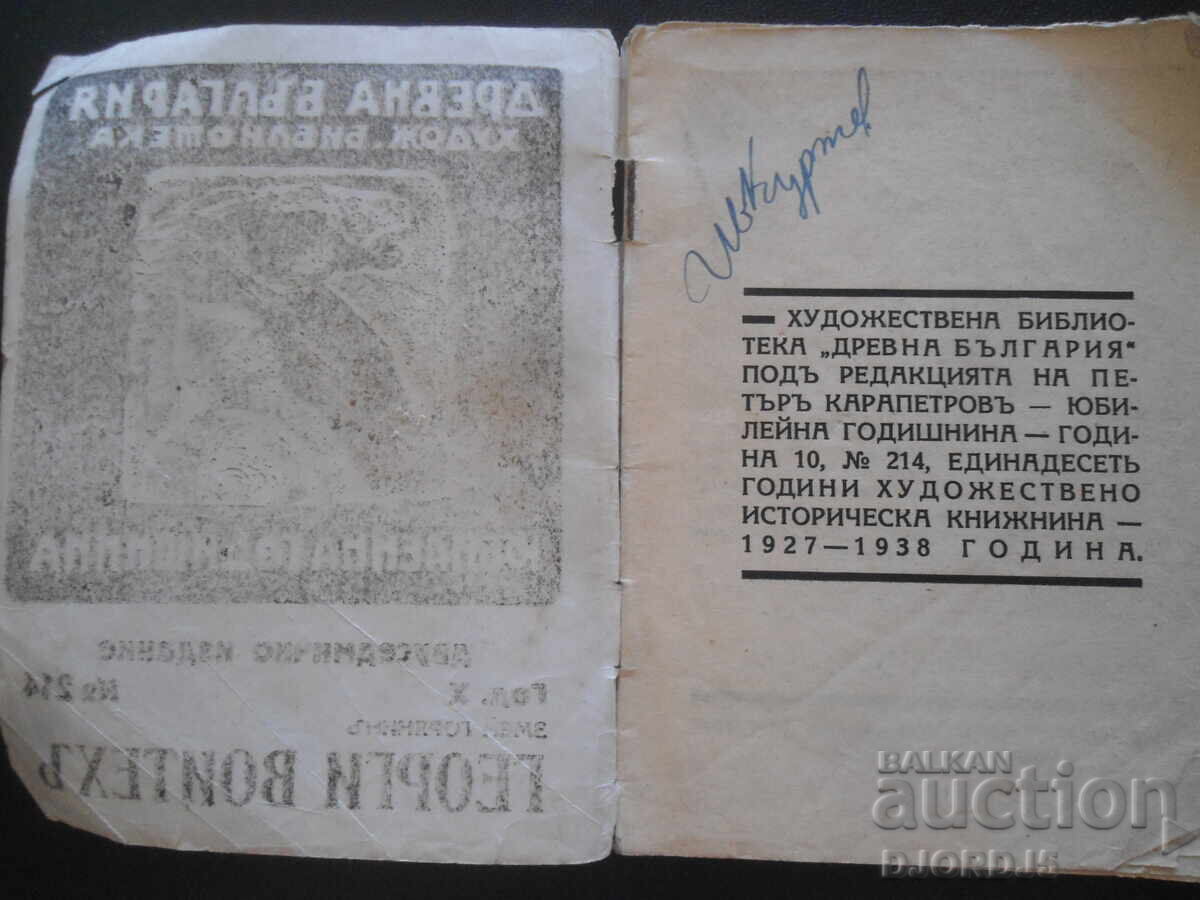 ДРЕВНА БЪЛГАРИЯ
ХУДОЖ. БИБЛИОТЕКА
ЮБИЛЕЙНА ГОДИШНИНА
двуседмично издание
Год. X № 214
ЗМЕЙ ГОРЯНИНЪ
ГЕОРГИ ВОЙТЕХЪ
Ив Куртев
— ХУДОЖЕСТВЕНА БИБЛИО-
ТЕКА „ДРЕВНА БЪЛГАРИЯ“
ПОДЪ РЕДАКЦИЯТА НА ПЕ-
ТЪРЪ КАРАПЕТРОВЪ — ЮБИ-
ЛЕЙНА ГОДИШНИНА — ГОДИ-
НА 10, № 214, ЕДИНАДЕСЕТЬ
ГОДИНИ ХУДОЖЕСТВЕНО
ИСТОРИЧЕСКА КНИЖНИНА —
1927—1938 ГОДИНА.
BALKAN
auction
DJORDJ5